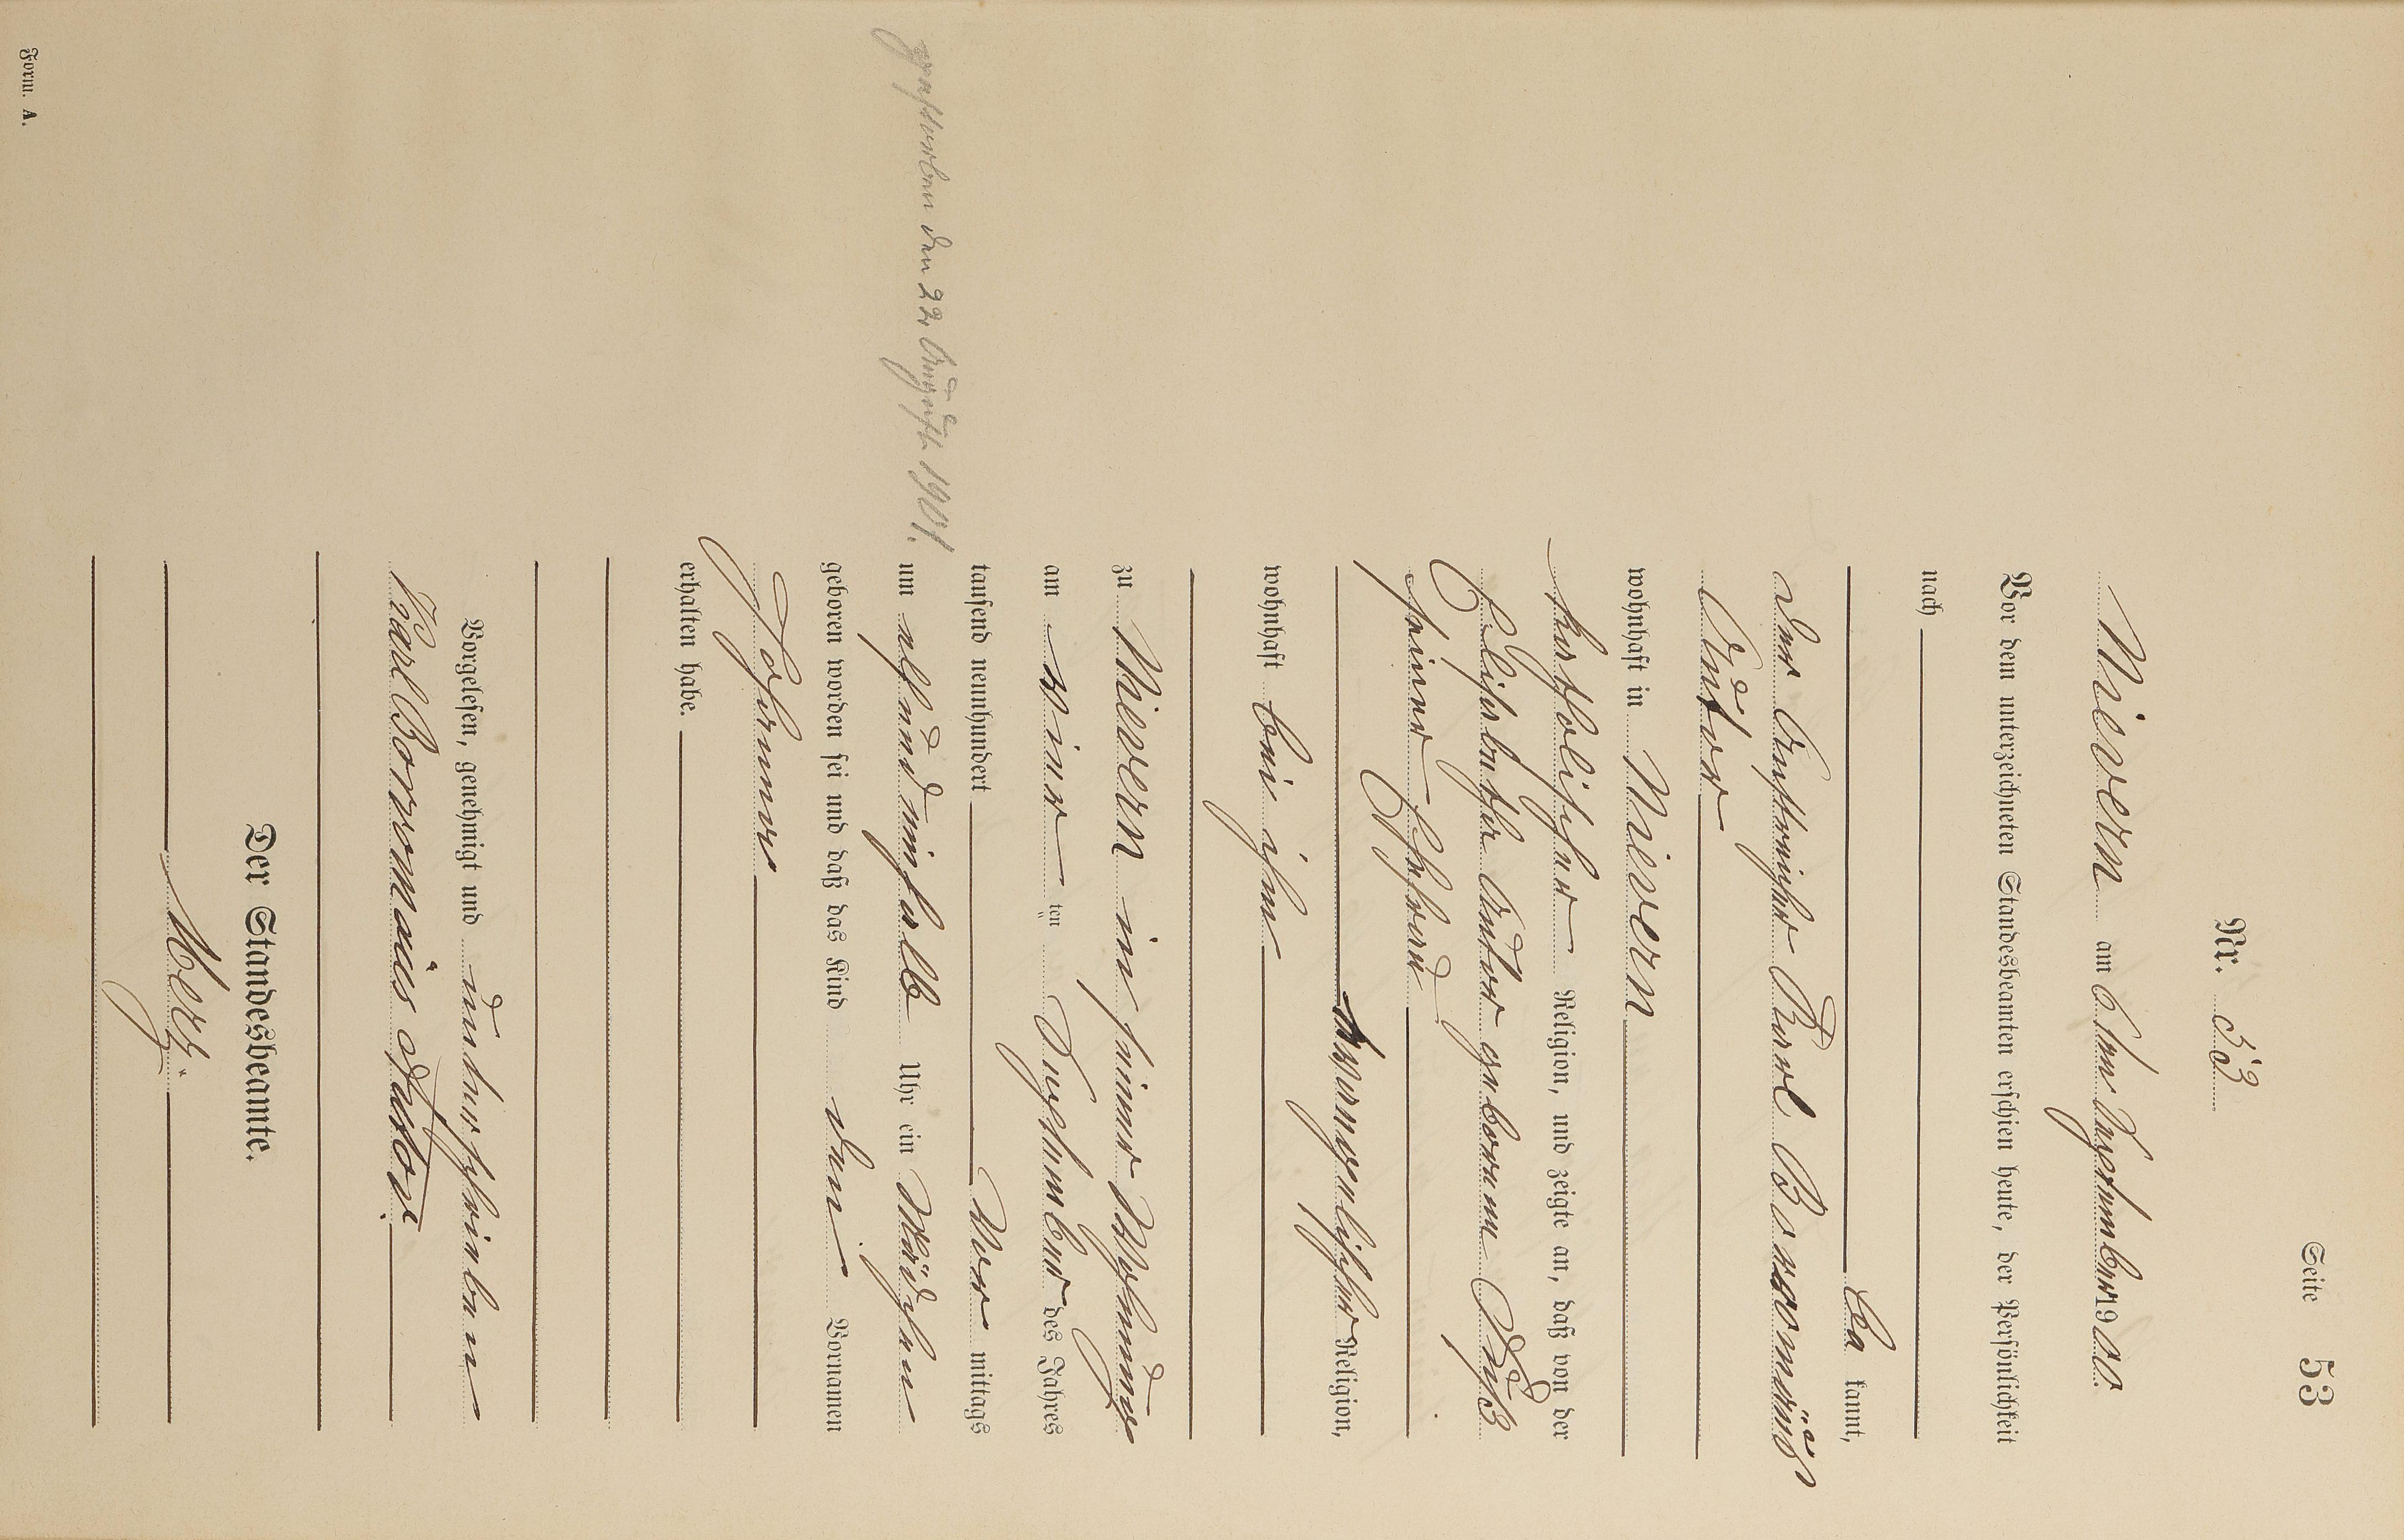 Seite 53
Nr. 53
Nievern am 6ten September 1900.
Vor dem unterzeichneten Standesbeamten erschien heute, der Persönlichkeit
nach
be kannt,
der Anstreicher Karl Borromäus
Sudor
wohnhaft in Nievern
katholischer Religion, und zeigte an, daß von der
Elisabetha Sudor geborene
seiner Ehefrau
evangelischer Religion,
wohnhaft bei ihm
zu Nievern in seiner Wohnung
am September des Jahres
tausend neunhundert Vor mittags
um elfundeinhalb Uhr ein Mädchen
geboren worden sei und daß das Kind den Vornamen
Johanna
erhalten habe.
gestorben den 22 August 1901.
Vorgelesen, genehmigt und unterschrieben
Karl Borromäus
Der Standesbeamte.
Form. A.